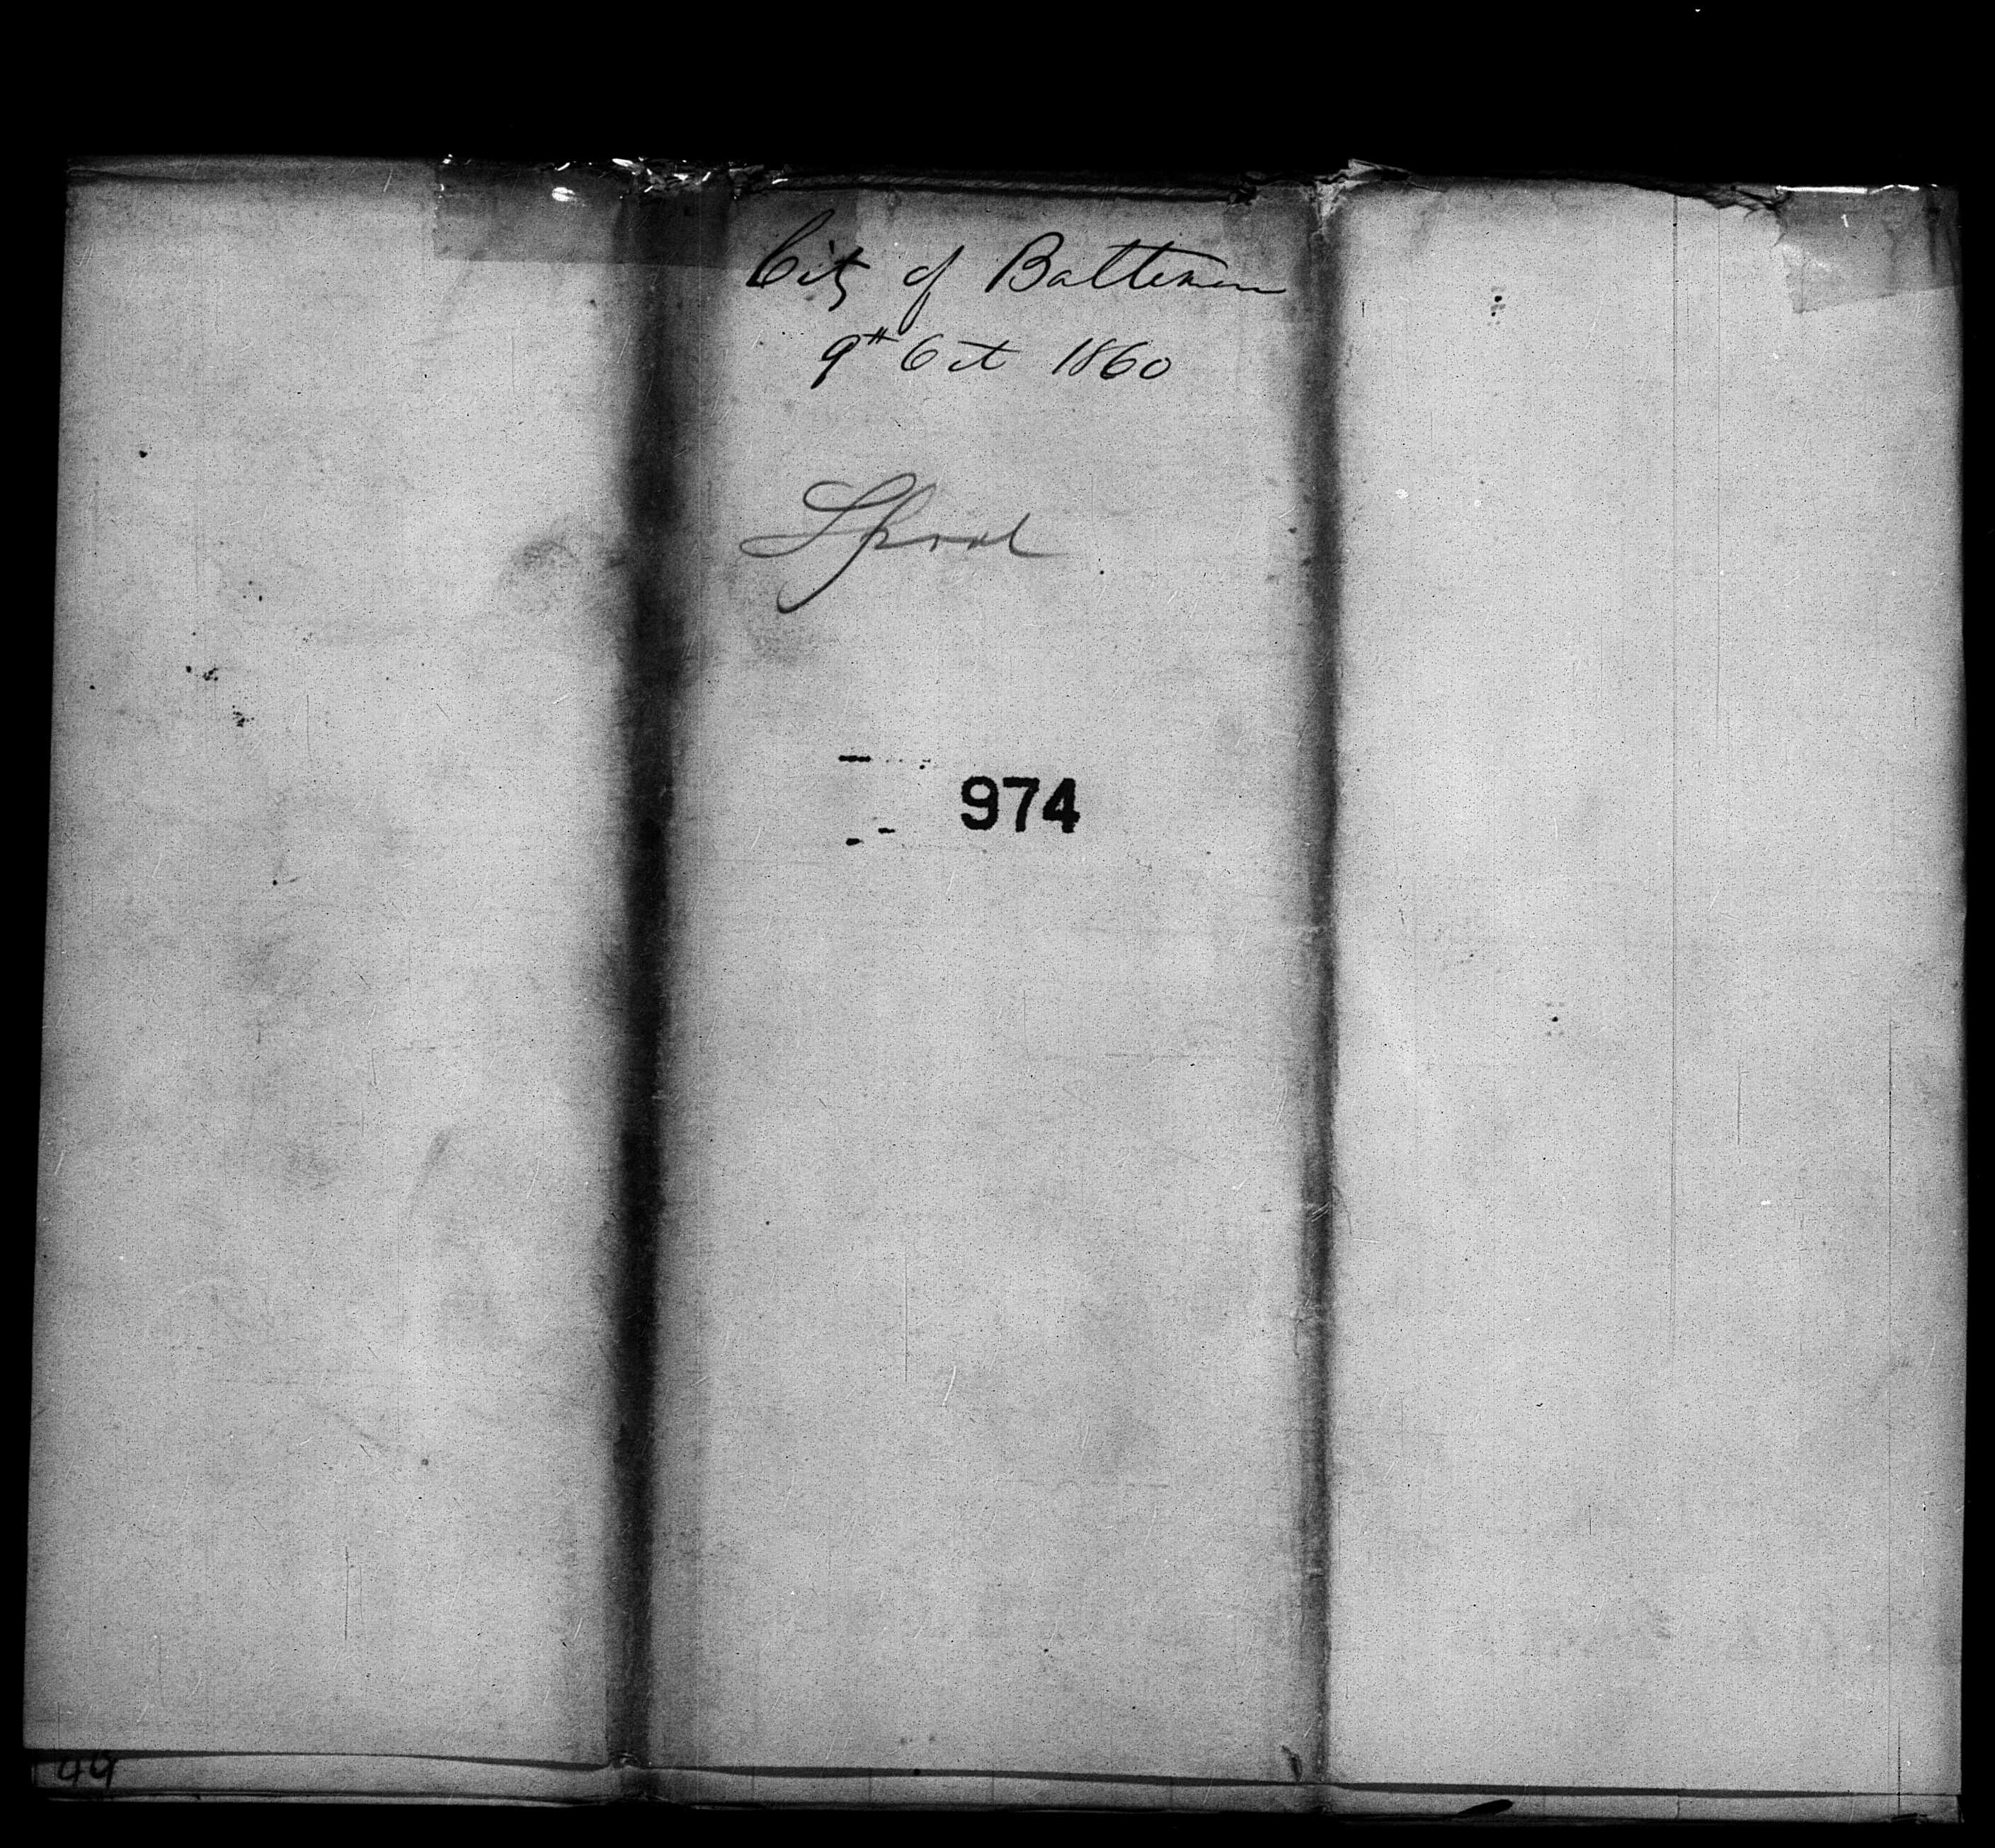 City of Baltimore
9th Oct 1860
974
49